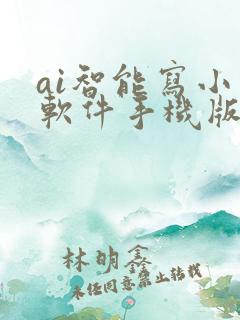 ai智能寫小
軟件手機版
林明鑫
未任同意禁止轉載